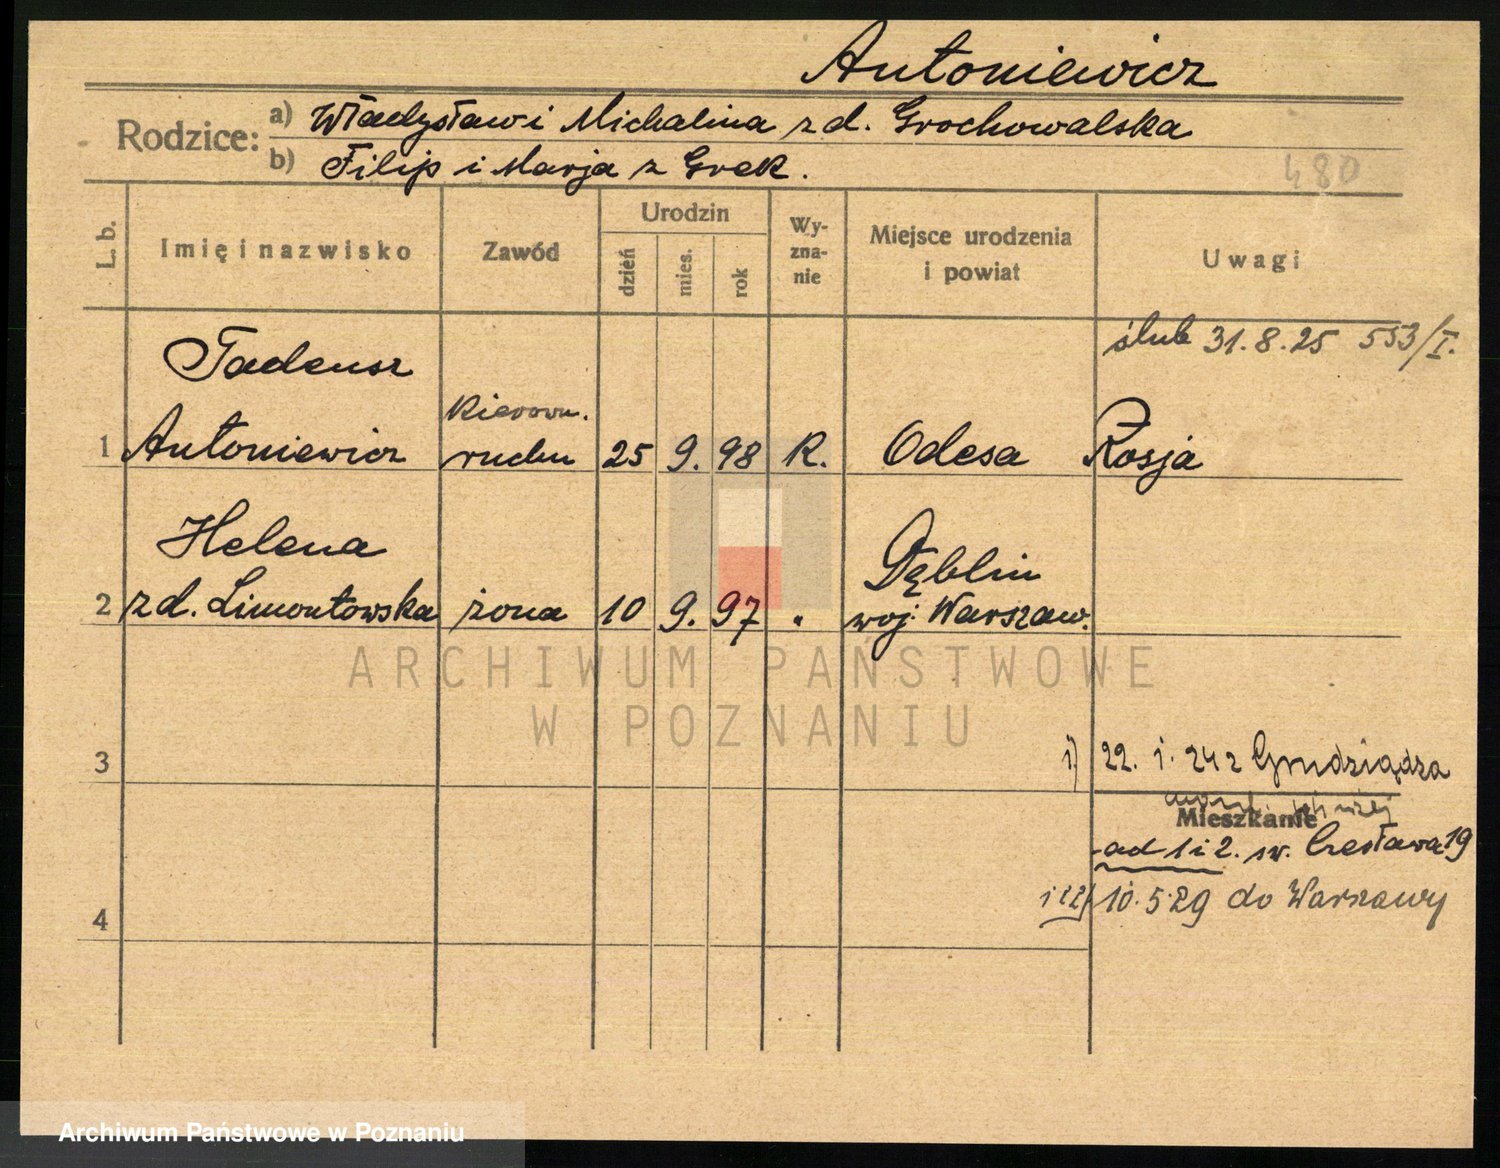 Antoniewicz
Rodzice: a) Władysław i Michalina z d. Grochowalska
b) Filip i Marja z Grek.
480
L. b.
Imię i nazwisko
Zawód
Urodzin
dzień
mies.
rok
Wy-
zna-
nie
Miejsce urodzenia
i powiat
Uwagi
ślub 31.8.25 553/I.
Tadeusz
kierown.
1 Antoniewicz ruchu 25 9. 98 R. Odesa Rosja
Helena
Dęblin
2 z d. Limontowska żona 10 9. 97 " woj. Warszaw.
ARCHIWUM PAŃSTWOWE
W POZNANIU
3
1) 22. 1. 24 z Grudziądza
Mieszkanie
ad 1 i 2. św. Czesława 19
10.5.29 do Warszawy
4
Archiwum Państwowe w Poznaniu